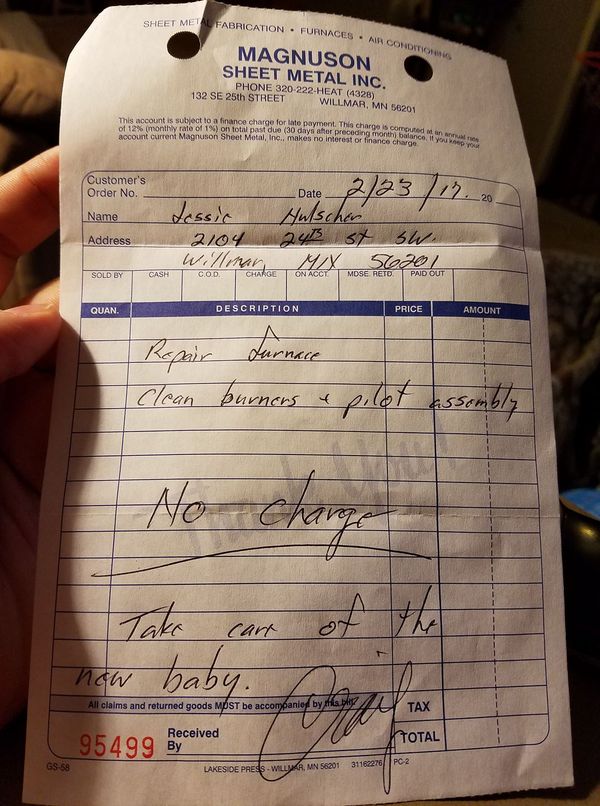 SHEET METAL FABRICATION • FURNACES • AIR CONDITIONING
MAGNUSON
SHEET METAL INC.
PHONE 320-222-HEAT (4328)
132 SE 25th STREET WILLMAR, MN 56201
This account is subject to a finance charge for late payment. This charge is computed at an annual rate
of 12% (monthly rate of 1%) on total past due (30 days after preceding month) balance. If you keep your
account current Magnuson Sheet Metal, Inc., makes no interest or finance charge.
Customer's
Order No. Date 2/23/17 20
Name Jessie Hulscher
Address 2104 24th St SW.
Willmar, MN 56201
SOLD BY CASH C.O.D. CHARGE ON ACCT. MDSE. RETD. PAID OUT
QUAN. DESCRIPTION PRICE AMOUNT
Repair furnace
Clean burners + pilot assembly
Thank You!
No Charge
Take care of the
new baby.
Craig
All claims and returned goods MUST be accompanied by this bill.
TAX
95499 Received By TOTAL
GS-58 LAKESIDE PRESS - WILLMAR, MN 56201 31162276 PC-2